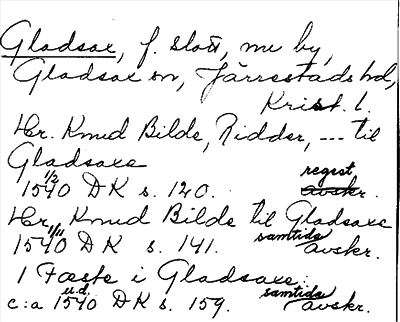 Gladsax, f. slott, nu by,
Gladsax sn, Järrestads hd,
Krist. l.
Hr. Knud Bilde, Ridder, --- til
Gladsaxe
1540 1/2 DK s. 120. regest avskr.
Hr. Knud Bilde til Gladsaxe
1540 1/11 DK s. 141. samtida avskr.
1 Fæste i Gladsaxe:
c:a 1540 u.d. DK s. 159. samtida avskr.